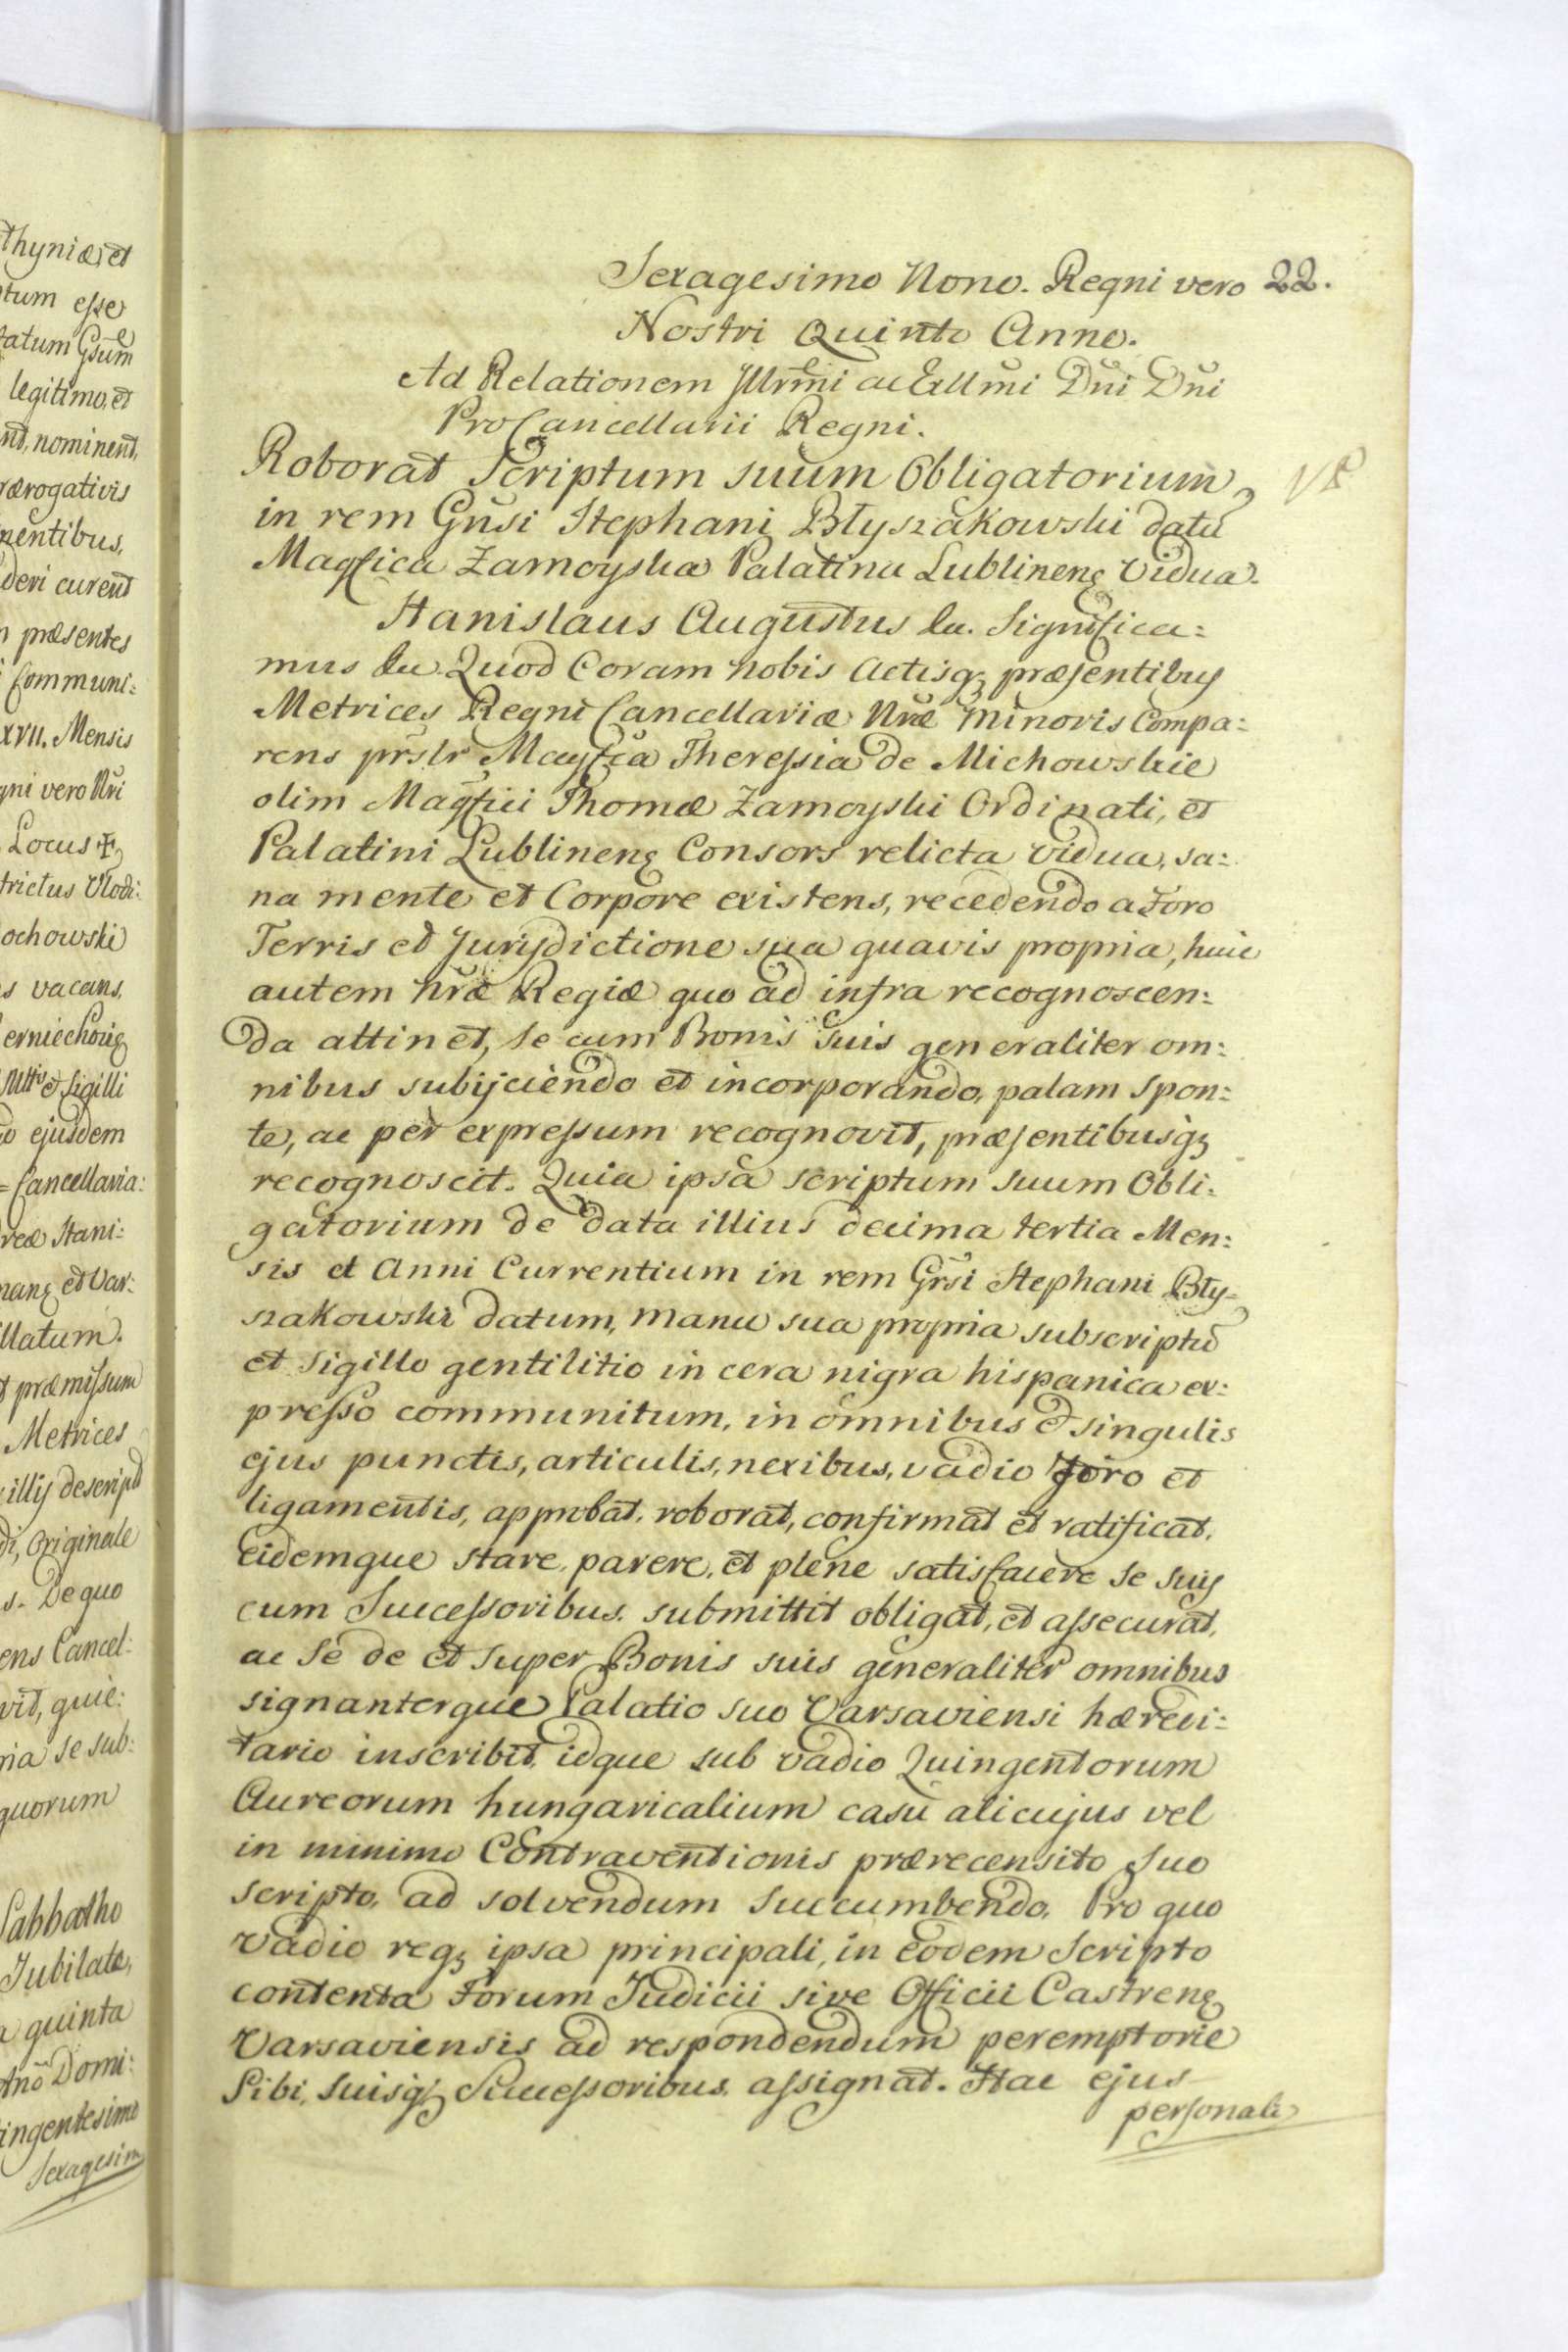 thyniæ, et
tum esse
tatum Gsum
legitimo, et
nt, nominent,
rærogativis
mentibus,
deri curent
præsentes
Communi:
XVII. Mensis
gni vero Nri
Locus ✠
trictus Vlodi:
ochowski
s vacans,
erniechovię
et Sigilli
ejusdem
Cancellaria:
reæ Stani:
et Var:
llatum.
præmissum
Metrices
illis descript
di, Originale
s. De quo
ens Cancel:
vit, quie:
ria se sub:
quorum
Sabbatho
Jubilate,
a quinta
Ano Domi:
ingentesimo
Sexagesim
Sexagesimo Nono. Regni vero 22.
Nostri Quinto Anno.
Ad Relationem Illrmi ac Exllmi Dni Dni
ProCancellarii Regni.
Roborat Scriptum suum Obligatorium
in rem Gnsi Stephani Błyszakowski datū
Magfica Zamoyska Palatina Lublinenę Vidua.
Stanislaus Augustus &a. Significa:
mus &a Quod Coram nobis Actisqȝ præsentibus
Metrices Regni Cancellariæ Nræ Minoris Compa:
rens prslr Magfca Theressia de Michowskie
olim Magfici Thomæ Zamoyski Ordinati, et
Palatini Lublinenę Consors relicta Vidua, sa:
na mente et Corpore existens, recedendo a Foro
Terris et Jurisdictione sua quavis propria, huic
autem nræ Regiæ quo ad infra recognoscen:
da attinet, se cum Bonis suis generaliter om:
nibus subijciendo et incorporando, palam spon:
te, ac per expressum recognovit, præsentibusqȝ
recognoscit. Quia ipsa scriptum suum Obli:
gatorium de data illius decima tertia Men:
sis et Anni Currentium in rem Grsi Stephani Bły=
szakowski datum, manu sua propria subscriptū
et sigillo gentilitio in cera nigra hispanica ex:
presso communitum, in omnibus et singulis
ejus punctis, articulis, nexibus, vadio Foro et
ligamentis, approbat, roborat, confirmat et ratificat,
Eidemque stare, parere, et plene satisfacere se suis
cum Successoribus, submittit obligat, et assecurat,
ac se de et super Bonis suis generaliter omnibus
signanterque Palatio suo Varsaviensi hæredi:
tario inscribit, idque sub vadio Quingentorum
Aureorum hungaricalium casu alicujus vel
in minimo Contraventionis prærecensito suo
scripto, ad solvendum succumbendo, Pro quo
Vadio reqȝ ipsa principali, in eodem Scripto
contenta Forum Judicii sive Officii Castrenę
Varsaviensis ad respondendum peremptorie
Sibi, suisqȝ Successoribus, assignat. Hac ejus
personali